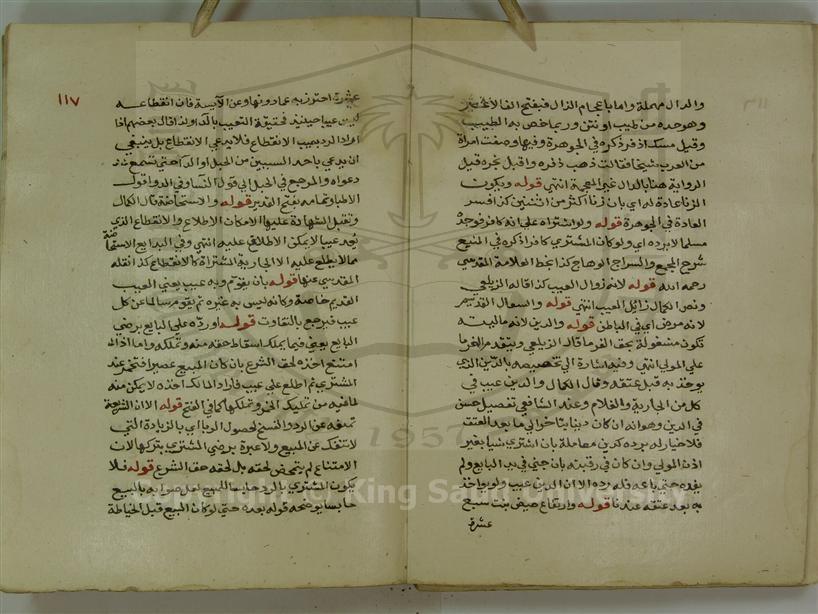 والدال مهملة واما باعجام الذال فبفتح الفا لا غير
وهو حدة من طيب او نتن وربما خص به الطيب
وقيل مسك اذفر ذكره في الجوهرة وفيها وصفت امراة
من العرب شيخا فقالت ذهب ذفره واقبل بخره قيل
الرواية هنا بالدال غير المعجمة انتهى قوله ويكون
الزنا عادة له اي بان زنا اكثر من اثنتين كذا فسر
العادة في الجوهرة قوله ولو اشتراه على انه كافر فوجده
مسلما لا يرده اي ولو كان المشتري كافرا ذكره في المنبع
شرح المجمع والسراج الوهاج كذا بخط العلامة المقدسي
رحمه الله قوله لانه زوال العيب كذا قاله الزيلعي
ونص الكمال زائل العيب انتهى قوله والسعال القديم
لانه مرض اي في الباطن قوله والدين لانه ماليته
تكون مشغولة بحق الغرما قاله الزيلعي ويتقدم الغرما
على المولى انتهى وفيه اشارة الى تخصيصه بالدين الذي
يوخذ به قبل عتقه وقال الكمال والدين عيب في
كل من الجارية والغلام وعند الشافعي تفصيل حسن
في الدين وهو انه ان كان دينا يتاخر الى ما بعد العتق
فلا خيار له برده كدين معاملة بان اشترى شيا بغير
اذن المولى وان كان في رقبته بان جنى في يد البايع ولم
يفده حتى باعه فله رده الا ان الدين عيب ولو يواخذ
به بعد عتقه عندنا قوله وارتفاع حيض بنت سبع
عشرة
١١٧
عشرة احترز به عما دونها وعن الآيسة فان انقطاعه
ليس عيبا حينئذ فحقيقة التعيب بالداء ولذا قال بعضهم اذا
اراد الرد بعيب الانقطاع فلا يدعي الانقطاع بل ينبغي
ان يدعي باحد السببين من الحبل او الداء حتى تسمع
دعواه والمرجع في الحبل الى قول النسا وفي الداء قول
الاطبا وتمامه بفتح القدير قوله والاستحاضة قال الكمال
وتقبل الشهادة عليها لامكان الاطلاع والانقطاع الذي
يعد عيبا لا يمكن الاطلاع عليه انتهى وفي البدايع الاستحاضة
مما لا يطلع عليه الا الجارية المشتراة كالانقطاع كذا نقله
المقدسي عنها قوله بان يقوم وبه عيب يعني العيب
القديم خاصة وكانه ليس به غيره ثم يقوم سالما عن كل
عيب فيرجع بالتفاوت قوله او رده على البايع برضى
البايع يعني فيما يملك اسقاط حقه منه وتملكه واما اذا
امتنع اخذه لحق الشرع بان كان المبيع عصيرا فتخمر عند
المشتري ثم اطلع على عيب فاراد المالك اخذه لا يمكن منه
لما فيه من تمليك الخمر وتملكها كما في الفتح قوله الا ان الشريعة
تمنعه عن الرد والفسخ لحصول الربا اي بالزيادة التي
لا تنفك عن المبيع ولا عبرة برضى المشتري بتركها لان
الامتناع لم يتمحض لحقه بل لحقه حق الشرع قوله فلا
يكون المشتري بالرد حابسا للمبيع لعل صوابه بالبيع
حابسا يوضحه قوله بعده حتى لو كان المبيع قبل الخياطة
Copyright © King Saud University
1957